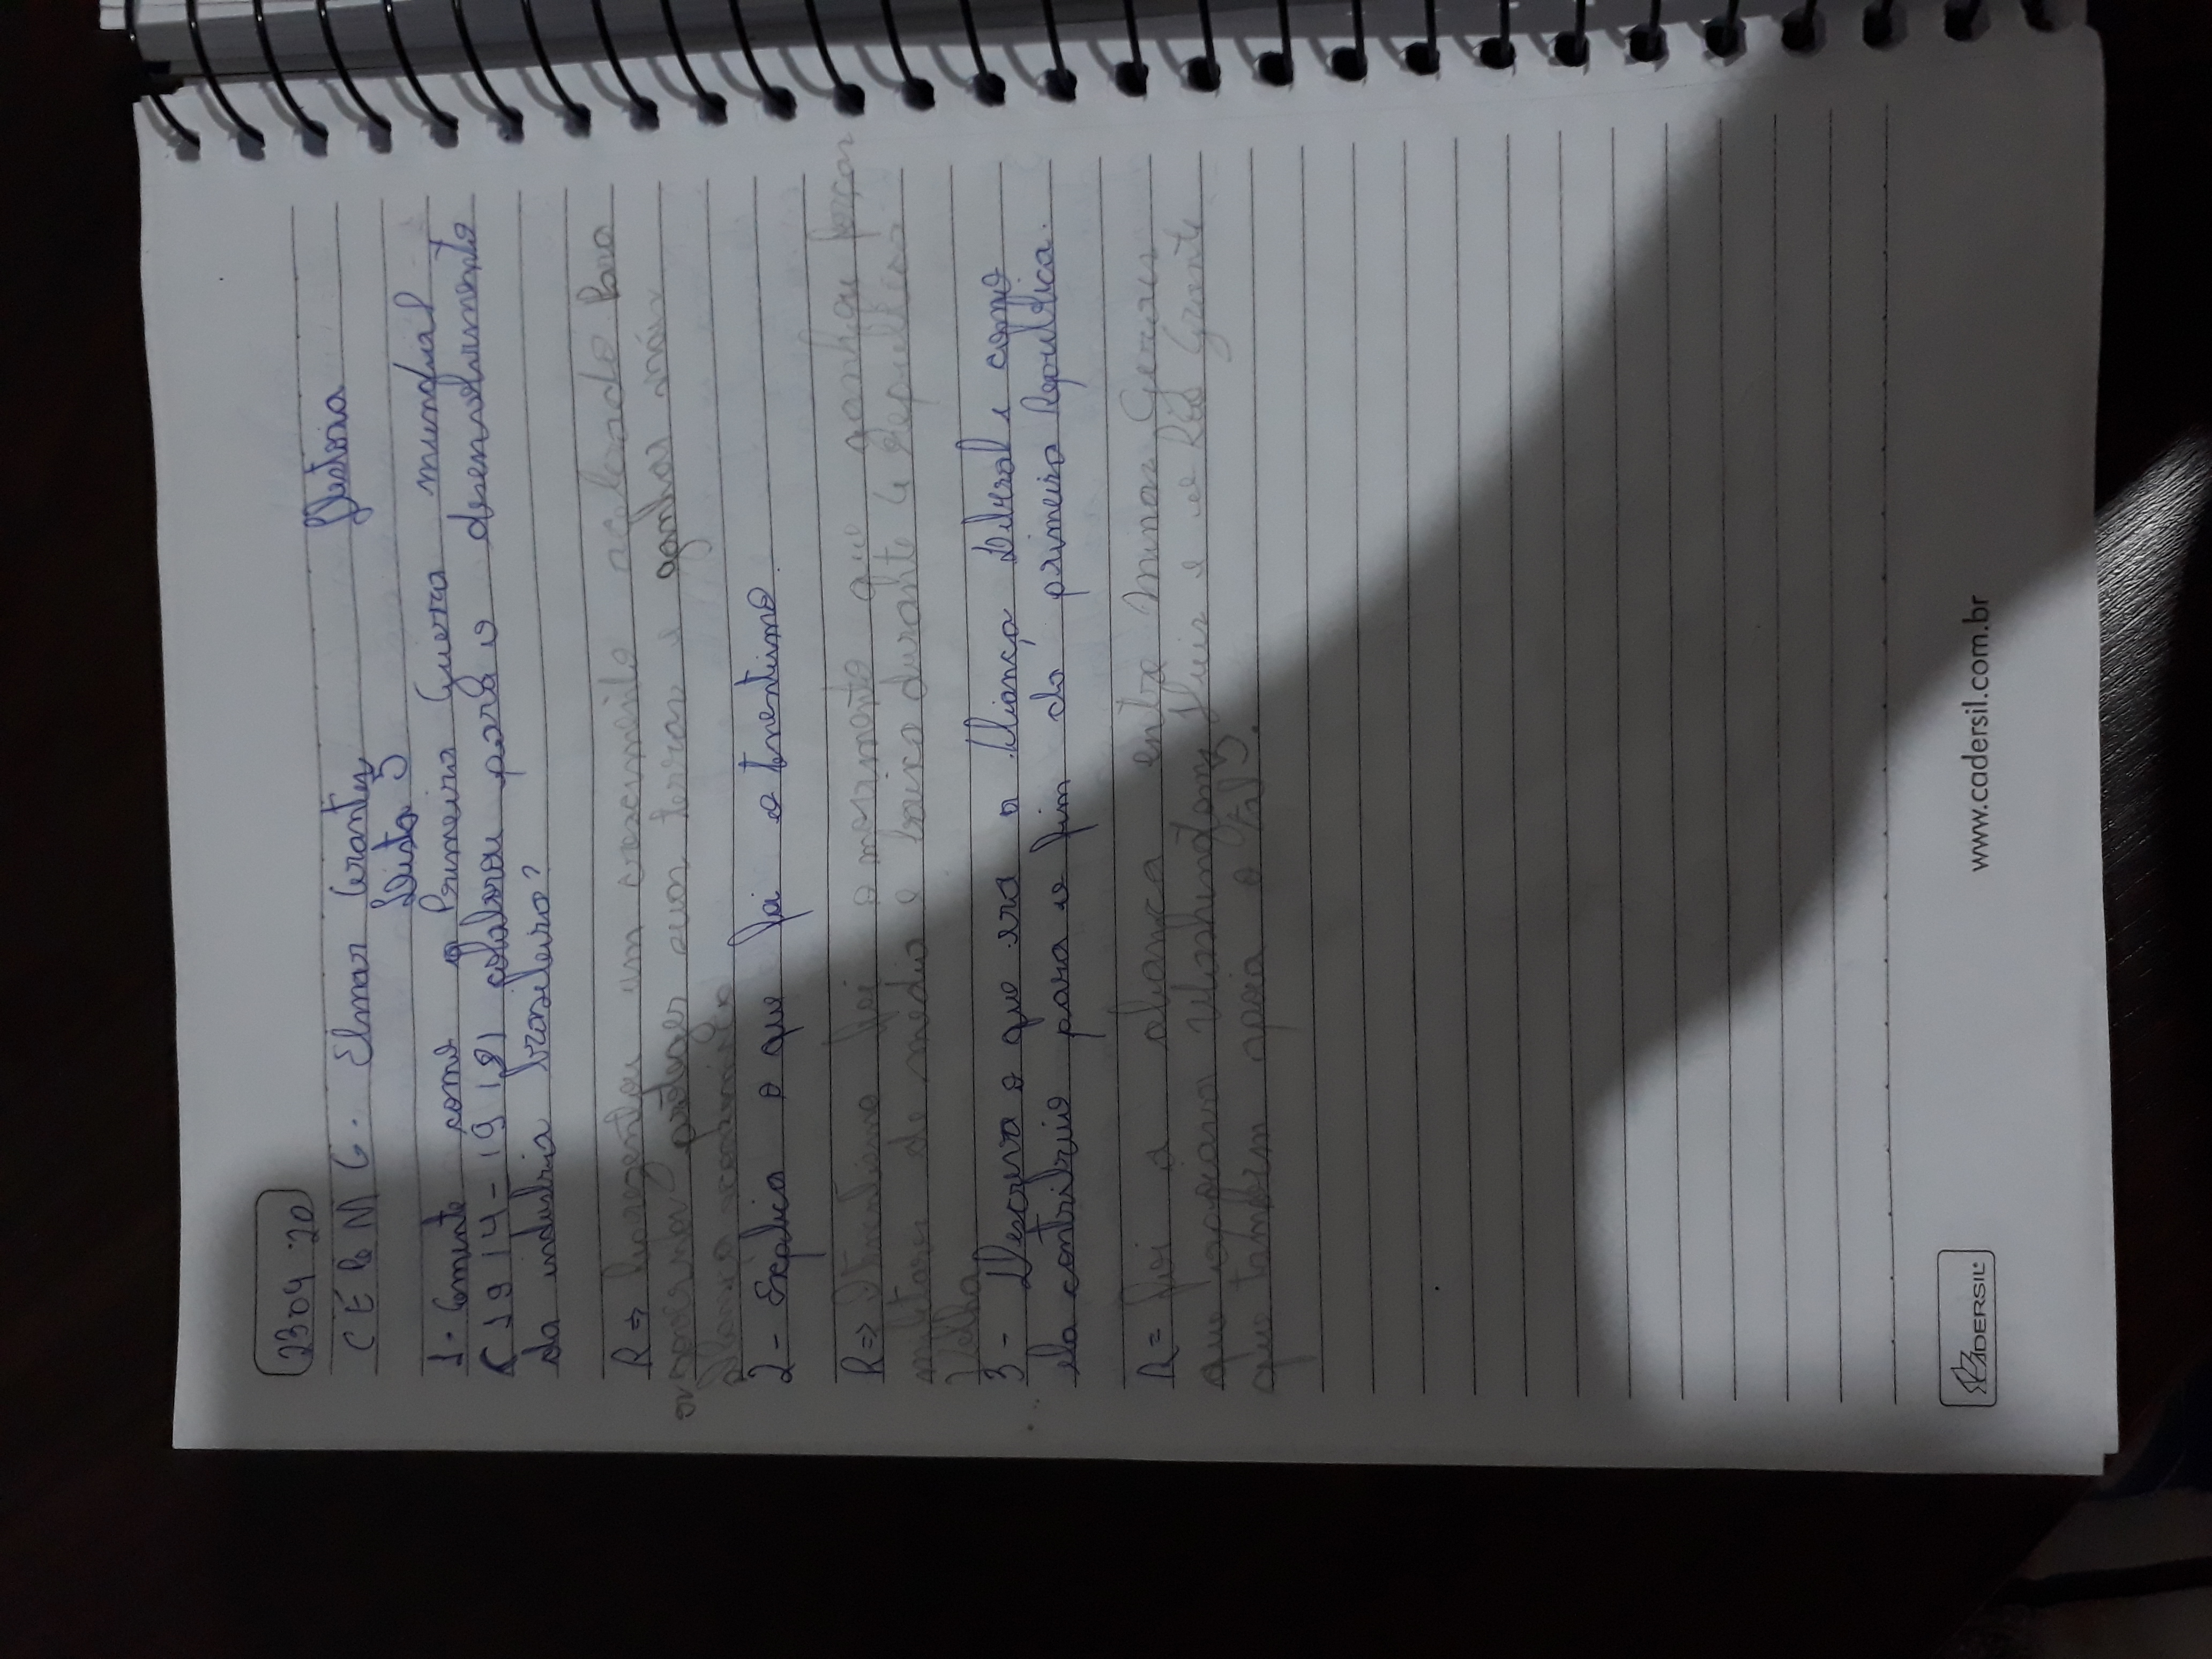 23 04 20
C E P M G. Elmar Arantes História
Lista 5
1 - Comente como a Primeira Guerra mundial
(1914-1918) colaborou para o desenvolvimento
da industria brasileiro?
R => um crescimento acelerado Para
proteger suas terras e ganhar mais
2 - Explica o que foi o tenentismo.
R => Tenentismo foi o movimento que ganhou forças
militares de media e baixa durante a República
Velha
3 - Descreva o que era a Aliança Liberal e como
ela contribuio para o fim da primeira República.
R = foi a aliança entre Minas Gerais
que apoiava Washington Luis e o Rio Grante
que tambem apoia o tal 5.
CADERSIL
www.cadersil.com.br